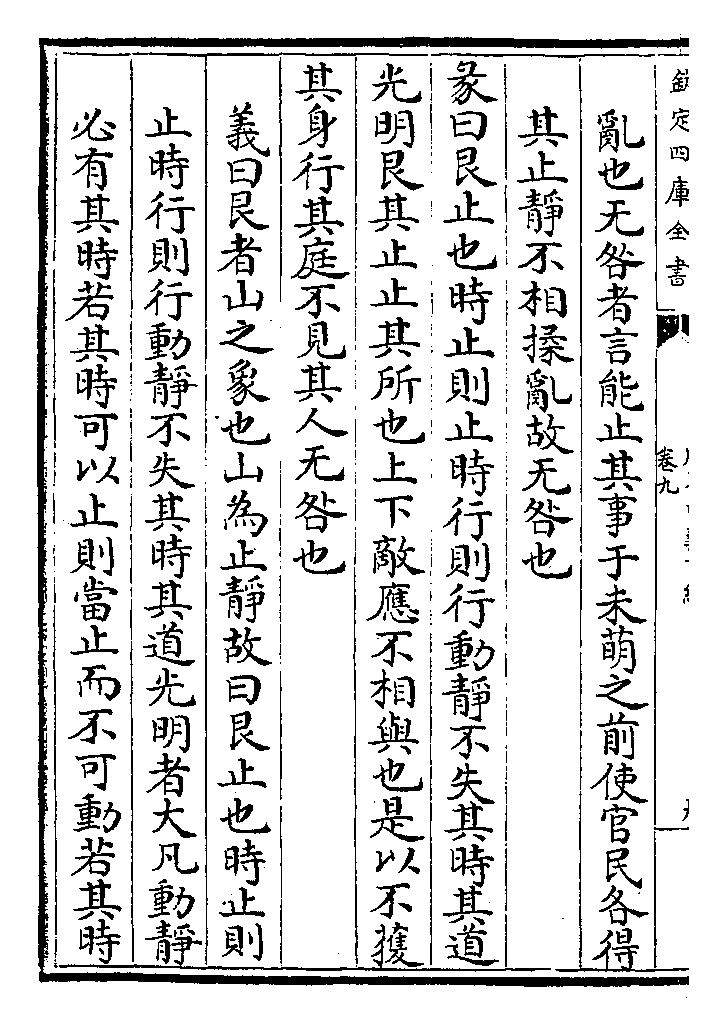 欽定四庫全書
卷九
亂也无咎者言能止其事于未萌之前使官民各得
其止靜不相揉亂故无咎也
彖曰艮止也時止則止時行則行動靜不失其時其道
光明艮其止止其所也上下敵應不相與也是以不獲
其身行其庭不見其人无咎也
義曰艮者山之象也山為止靜故曰艮止也時止則
止時行則行動靜不失其時其道光明者大凡動靜
必有其時若其時可以止則當止而不可動若其時